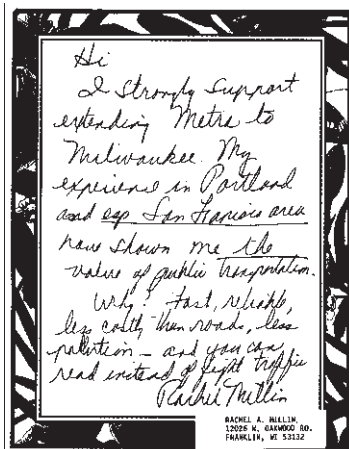 Hi
I strongly support
extending Metra to
Milwaukee. My
experience in Portland
and esp San Francisco area
have shown me the
value of public transportation.
Why? Fast, reliable,
less costly than roads, less
pollution - and you can
read instead of fight traffic
Rachel Millin
RACHEL A. MILLIN
12026 W. OAKWOOD RD.
FRANKLIN, WI 53132